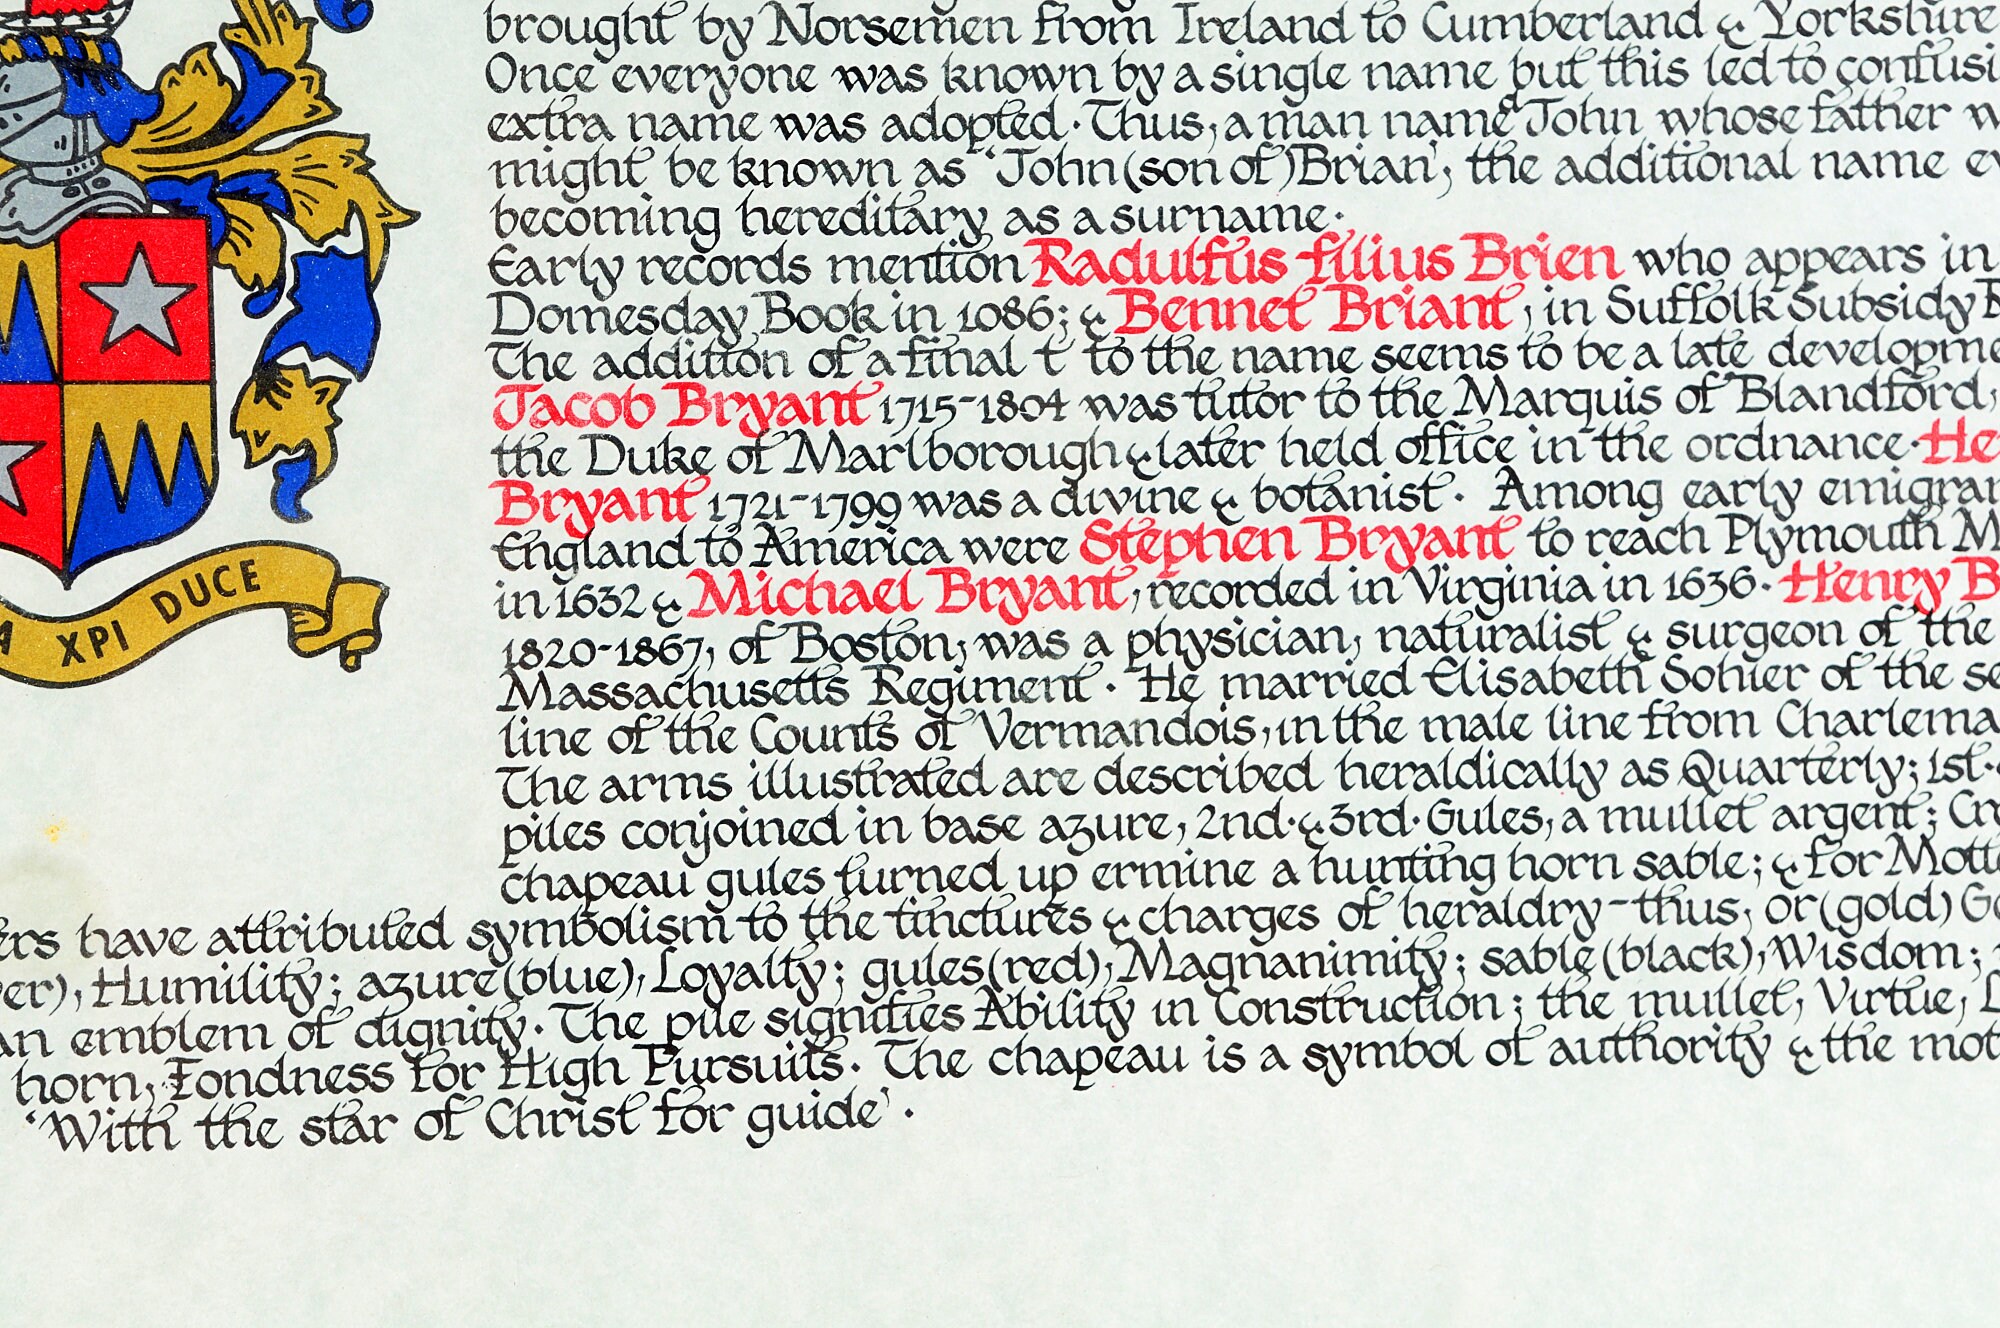 brought by Norsemen from Ireland to Cumberland & Yorkshire
Once everyone was known by a single name but this led to confusi
extra name was adopted. Thus, a man name John whose father w
might be known as 'John (son of) Brian', the additional name ev
becoming hereditary as a surname.
Early records mention Radulfus filius Brien who appears in
Domesday Book in 1086; & Bennet Briant, in Suffolk Subsidy R
The addition of a final t to the name seems to be a late developme
Jacob Bryant 1715-1804 was tutor to the Marquis of Blandford,
the Duke of Marlborough & later held office in the ordnance. He
Bryant 1721-1799 was a divine & botanist. Among early emigran
England to America were Stephen Bryant to reach Plymouth M
in 1632 & Michael Bryant, recorded in Virginia in 1636. Henry B
1820-1867, of Boston, was a physician, naturalist & surgeon of the
Massachusetts Regiment. He married Elisabeth Sohier of the se
line of the Counts of Vermandois, in the male line from Charlema
The arms illustrated are described heraldically as Quarterly; 1st.
piles conjoined in base azure, 2nd. & 3rd. Gules, a mullet argent; Cre
chapeau gules turned up ermine a hunting horn sable; & for Motto
ers have attributed symbolism to the tinctures & charges of heraldry - thus, or (gold) Ge
ver), Humility; azure (blue), Loyalty; gules (red), Magnanimity; sable (black), Wisdom;
an emblem of dignity. The pile signifies Ability in Construction; the mullet, Virtue, L
horn, Fondness for High Pursuits. The chapeau is a symbol of authority & the mot
'With the star of Christ for guide'.
A XPI DUCE